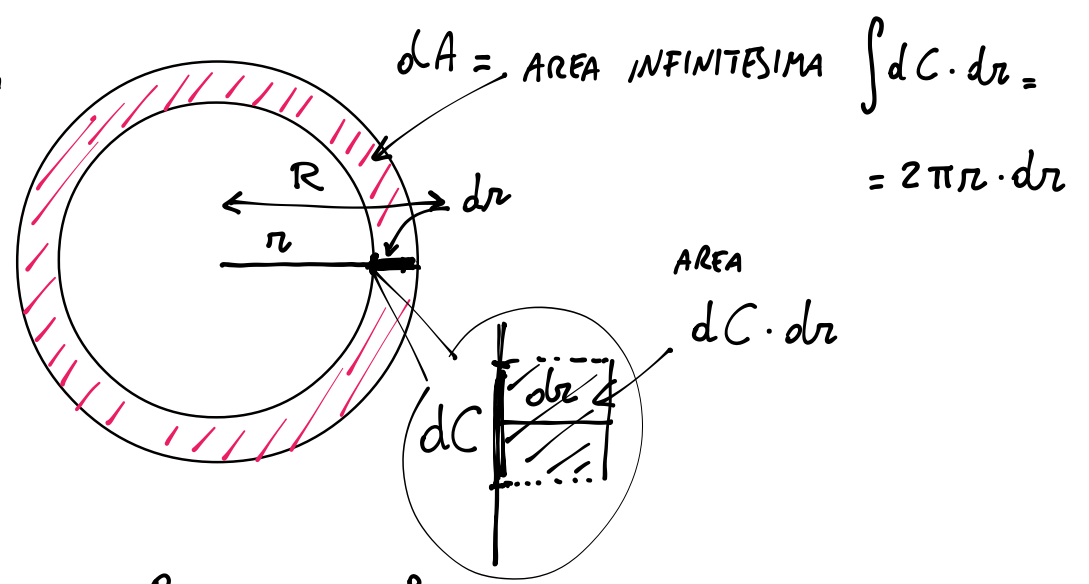 dA = AREA INFINITESIMA ∫dC·dr =
= 2πr·dr
R
dr
r
AREA
dC·dr
dr
dC